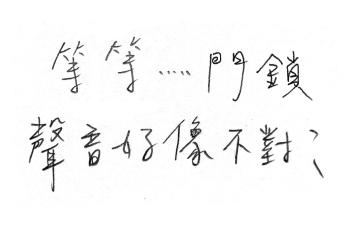 等等.....門鎖
聲音好像不對？